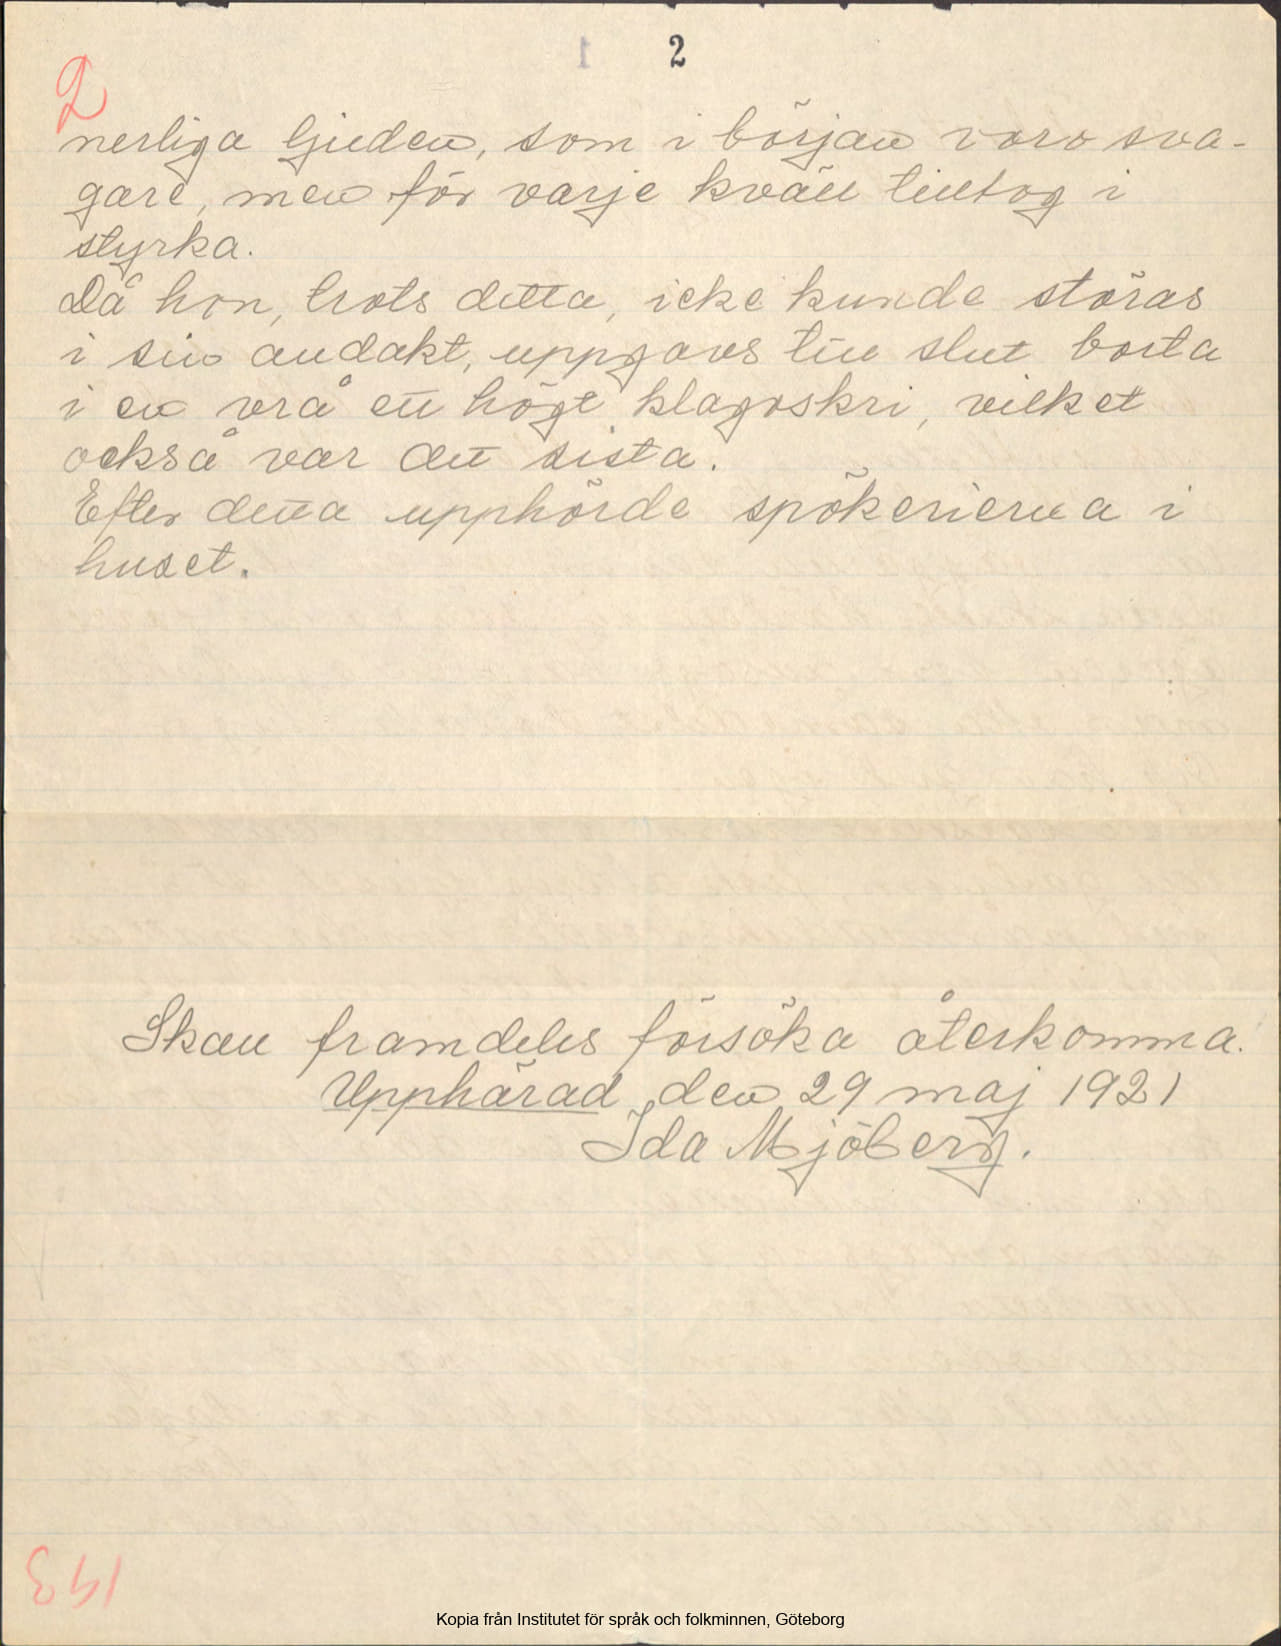 1 2
2
nerliga ljuden, som i början voro sva-
gare, men för varje kväll tilltog i
styrka.
Då hon, trots detta, icke kunde störas
i sin andakt, uppgavs till slut borta
i en vrå ett högt klagoskri, vilket
också var det sista.
Efter detta upphörde spökerierna i
huset.
Skall framdeles försöka återkomma.
Upphärad den 29 maj 1921
Ida Mjöberg.
193
Kopia från Institutet för språk och folkminnen, Göteborg